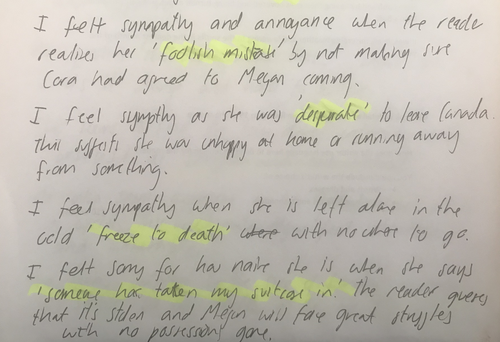 I felt sympathy and annoyance when the reader
realises her 'foolish mistake' by not making sure
Cora had agreed to Megan coming.
I feel sympthy as she was 'desperate' to leave Canada.
This suggests she was unhappy at home or running away
from something.
I feel sympathy when she is left alone in the
cold 'freeze to death' with no where to go.
I felt sorry for how naive she is when she says
'someone has taken my suitcase in.' The reader
that it's stolen and Megan will face great struggles
with no possessions